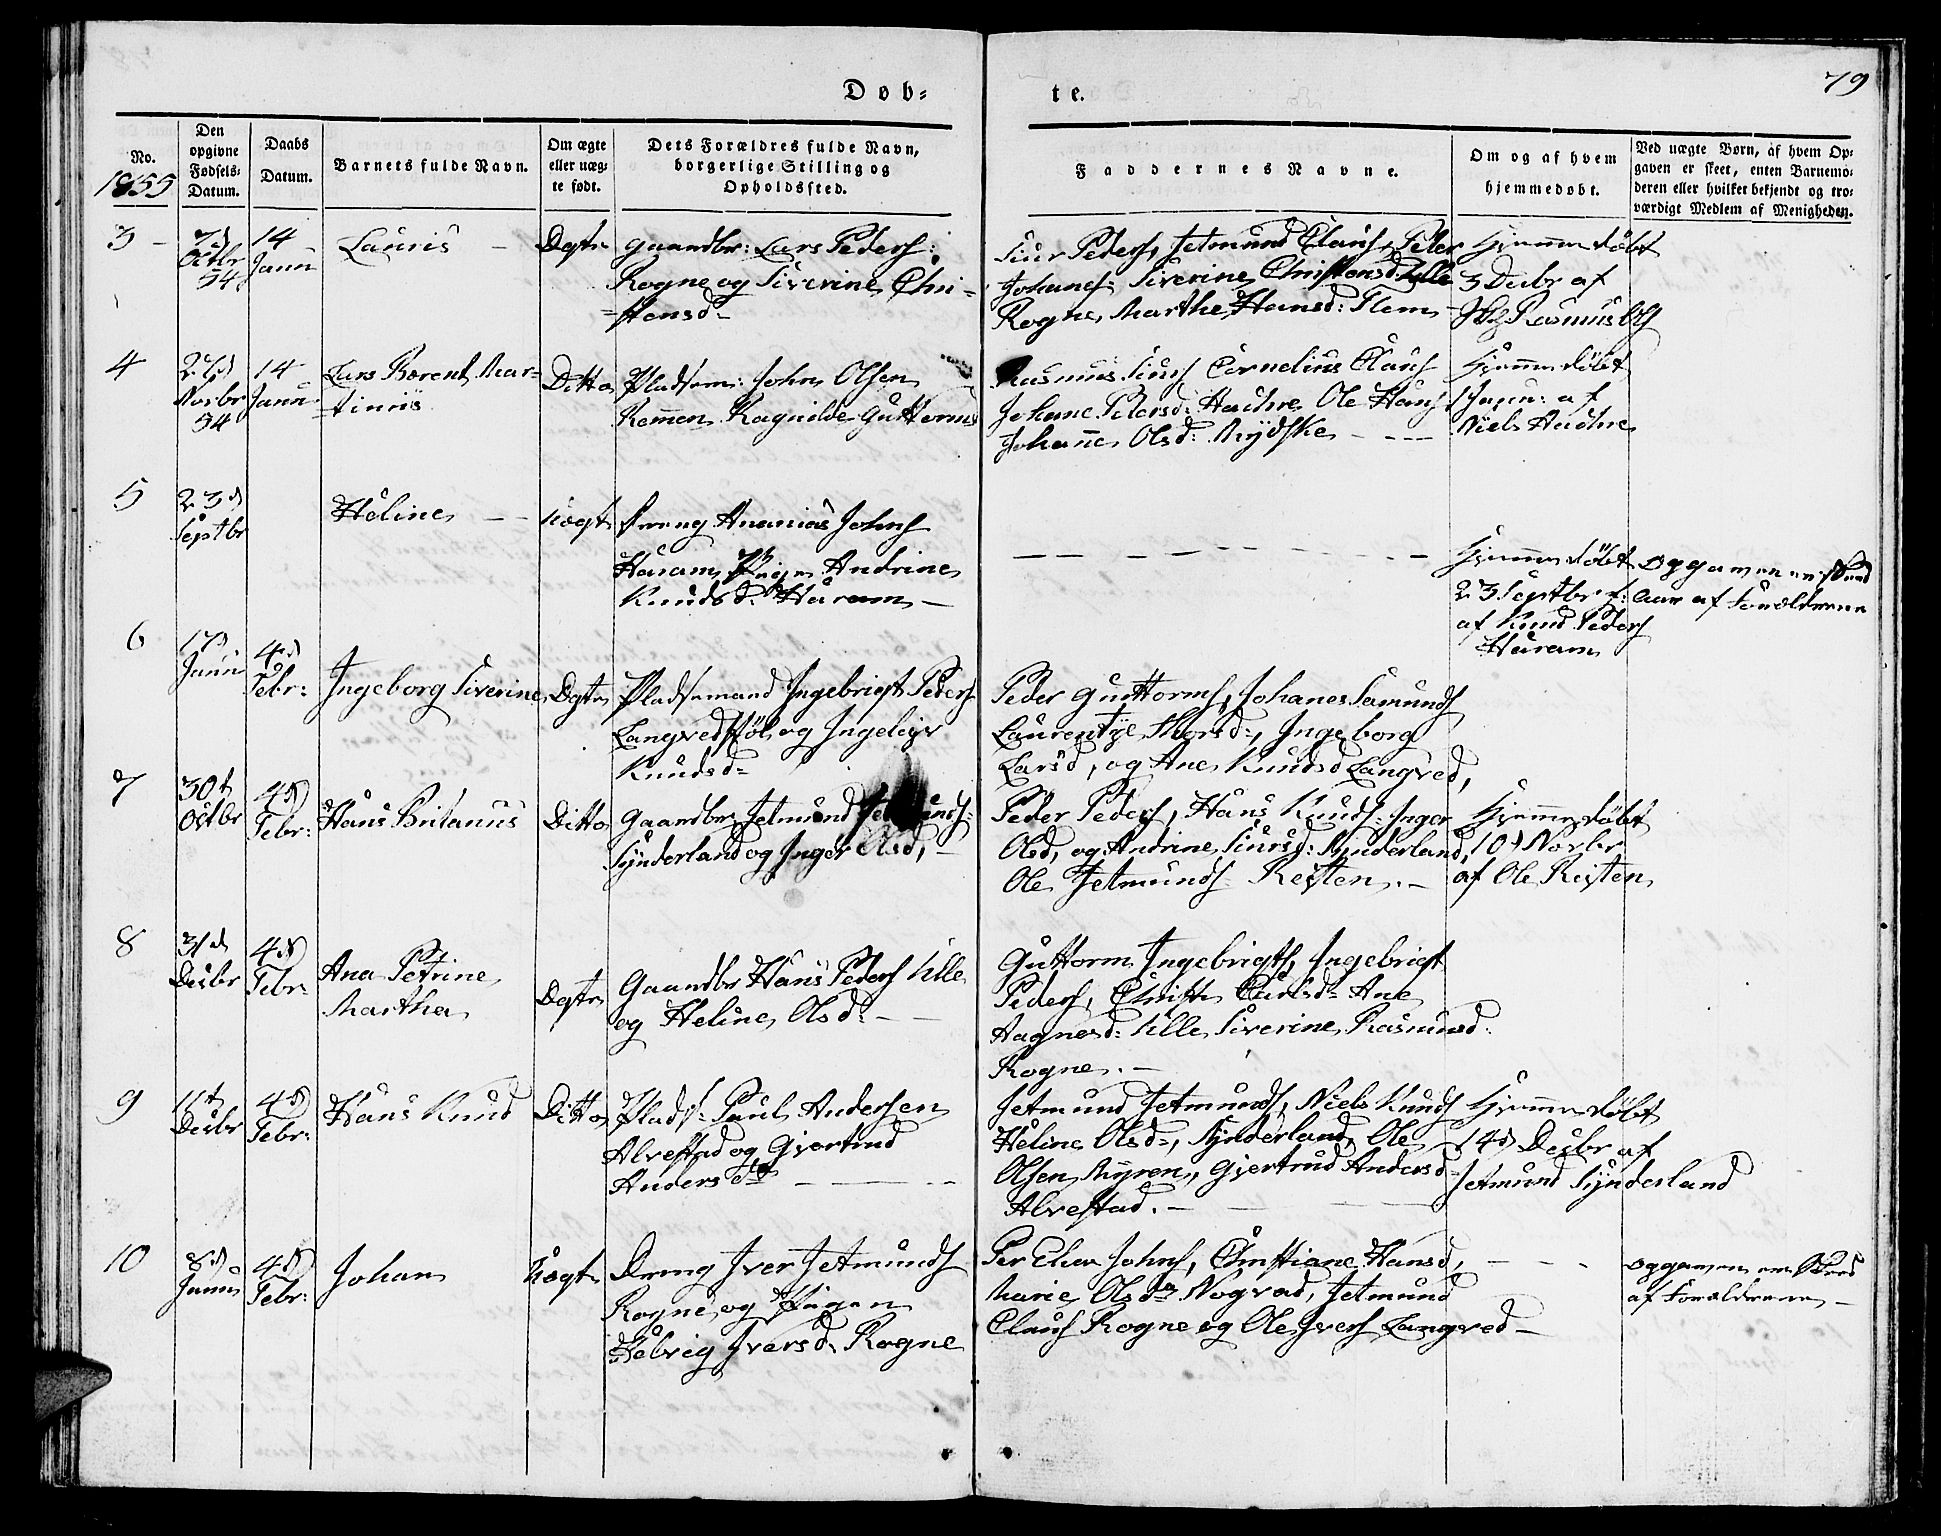 79
Døb-
te.
No.
1855
Den
opgivne
Fødsels-
Datum.
Daabs
Datum.
Barnets fulde Navn.
Om ægte
eller uæg-
te født.
Dets Forældres fulde Navn,
borgerlige Stilling og
Opholdssted.
Faddernes Navne.
Om og af hvem
hjemmedøbt.
Ved uægte Børn, af hvem Op-
gaven er skeet, enten Barnemo-
deren eller hvilket bekjendt og tro-
værdigt Medlem af Menigheden.
3 -
7d
Octbr
54
14
Janu
Lauris -
Dgte
Gaardbr: Lars Peders:
Rogne og Siverine Chri-
stensd
Siur Peders, Jetmund Claus, Peter
Johans: Siverine Christensd Ulle
Rogne, Marthe Hansd: Flem
Hjemmedøbt
3 Decbr af
Rasmus Ols
4
27d
Novbr
54
14
Janu
Lars Berent Mar-
tinus
Ditto
Pladsem: John Olsen
Remmen Ragnilde Guttorms
Rasmus Siurs Cornelius Claus
Johane Petersd: Hachre Ole Hans
Johane Olsd: Mydske - ---
Hjemmedøbt
1 Janu: af
Niels Hachre
5
23d
Septbr
Heline - -
Uægte
Dreng Ananias Johns
Haram, Pigen Andrine
Knudsd: Haram -
Hjemmedøbt
23 Septbr f:
af Knud Peders
Haram
Opgaven er skeed
Aar af Forældrene
6
17d
Janu
4d
Febr:
Ingeborg Siverine
Dgte
Pladsemand Ingebrigt Peders
Langvedstøl og Ingeleiv
Knudsd
Peder Guttorms, Johanes Samunds
Laurentze Thorsd:, Ingeborg
Larsd, og Ane Knudsd Langved,
7
30t
Octbr
4d
Febr:
Hans Britanus
Ditto
Gaardbr Jetmund Jetmunds:
Synderland og Inger Olsd, -
Peder Peders, Hans Knuds: Inger
Olsd, og Andrine Siursd: Synderland,
Ole Jetmunds Resten. -
Hjemmedøbt
10d Novbr
af Ole Risten
8
31d
Decbr
4d
Febr:
Ana Petrine
Martha
Dgte
Gaardbr Hans Peders Ulle
og Heline Olsd: - -
Guttorm Ingebrigts, Ingebrigt
Peders, Christi Carlsd: Ane
Aagnesd: Ulle Siverine Rasmusd:
Rogne. -
9
11t
Decbr
4d
Febr:
Hans Knud
Ditto
Plads: Paul Andersen
Alvestad og Gjertrud
Andersdt - -
Jetmund Jetmunds, Niels Knuds
Heline Olsd:, Synderland, Ole
Olsen Myren, Gjertrud Andersd
Alvestad. -
Hjemmedøbt
14d Decbr af
Jetmund Synderland
10
8d
Janu
4d
Febr:
Johan
Uægte
Dreng Iver Jetmunds
Rogne, og Pigen
Helvig Iversd: Rogne
Per Elias Johns, Christiane Hansd,
Marie Olsd: Nogvad, Jetmund
Claus Rogne og Ole Ivers Langved -
Opgaven er skeed
af Forældrene -